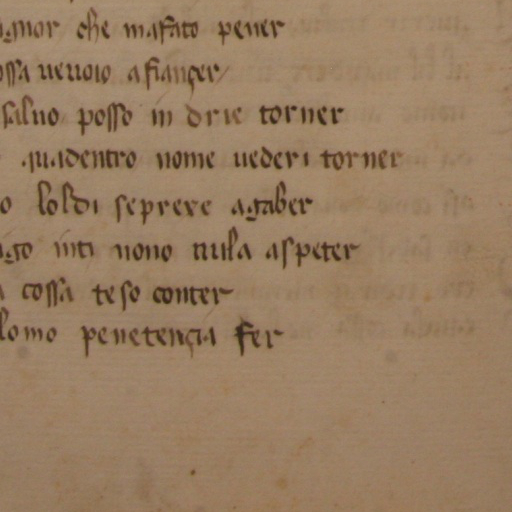 che mafato pener
ossa veuoio afiançer
saluo posso in drie torner
quadentro nome uederi torner
o loldi seprexe agaber
inti nono nula aspeter
a cossa teso conter
lomo penetençia fer